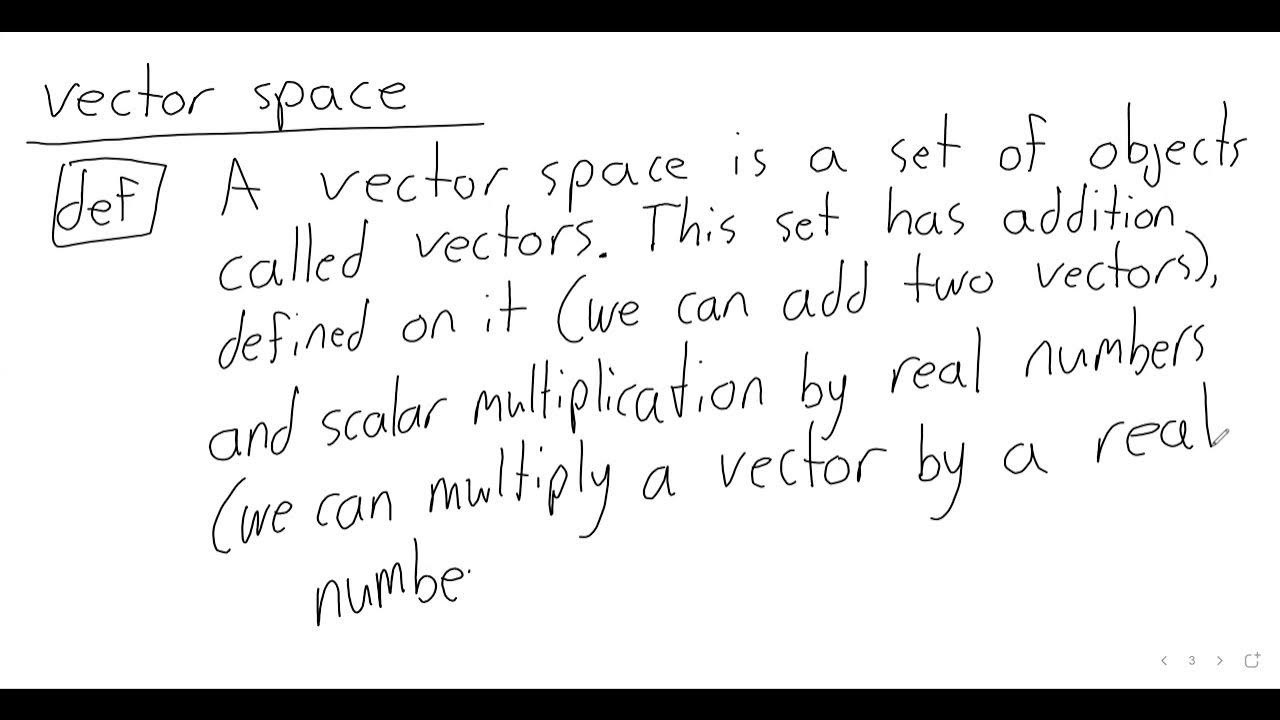 vector space
def A vector space is a set of objects
called vectors. This set has addition
defined on it (we can add two vectors),
and scalar multiplication by real numbers
(we can multiply a vector by a real
numbe
3